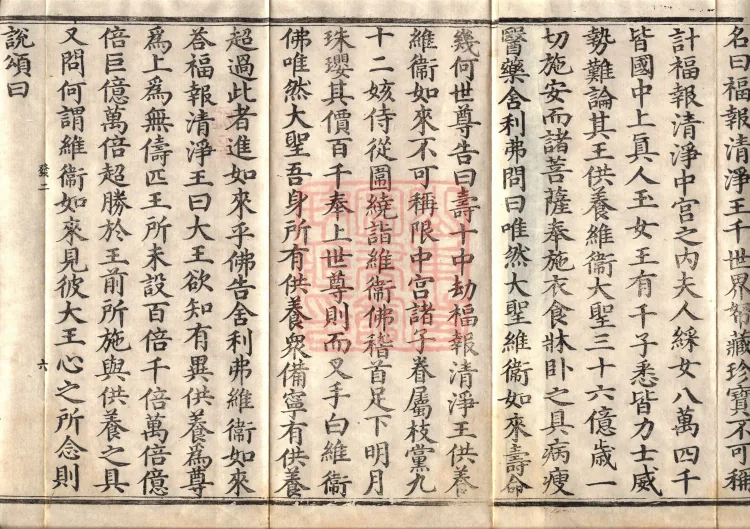 名曰福報清淨王千世界帑藏珍寶不可稱
計福報清淨中宮之內夫人綵女八萬四千
皆國中上眞人玉女王有千子悉皆力士威
勢難論其王供養維衞大聖三十六億歲一
切施安而諸菩薩奉施衣食牀卧之具病瘦
醫藥舍利弗問曰唯然大聖維衞如來壽命
幾何世尊告曰壽十中劫福報清淨王供養
維衞如來不可稱限中宮諸子眷屬枝黨九
十二姟侍從圍繞詣維衞佛稽首足下明月
珠瓔其價百千奉上世尊則而叉手白維衞
佛唯然大聖吾身所有供養衆備寧有供養
超過此者進如來乎佛告舍利弗維衞如來
荅福報清淨王曰大王欲知有異供養爲尊
爲上爲無儔匹王所未設百倍千倍萬倍億
倍巨億萬倍超勝於王前所施與供養之具
又問何謂維衞如來見彼大王心之所念則
說頌曰
發二
六